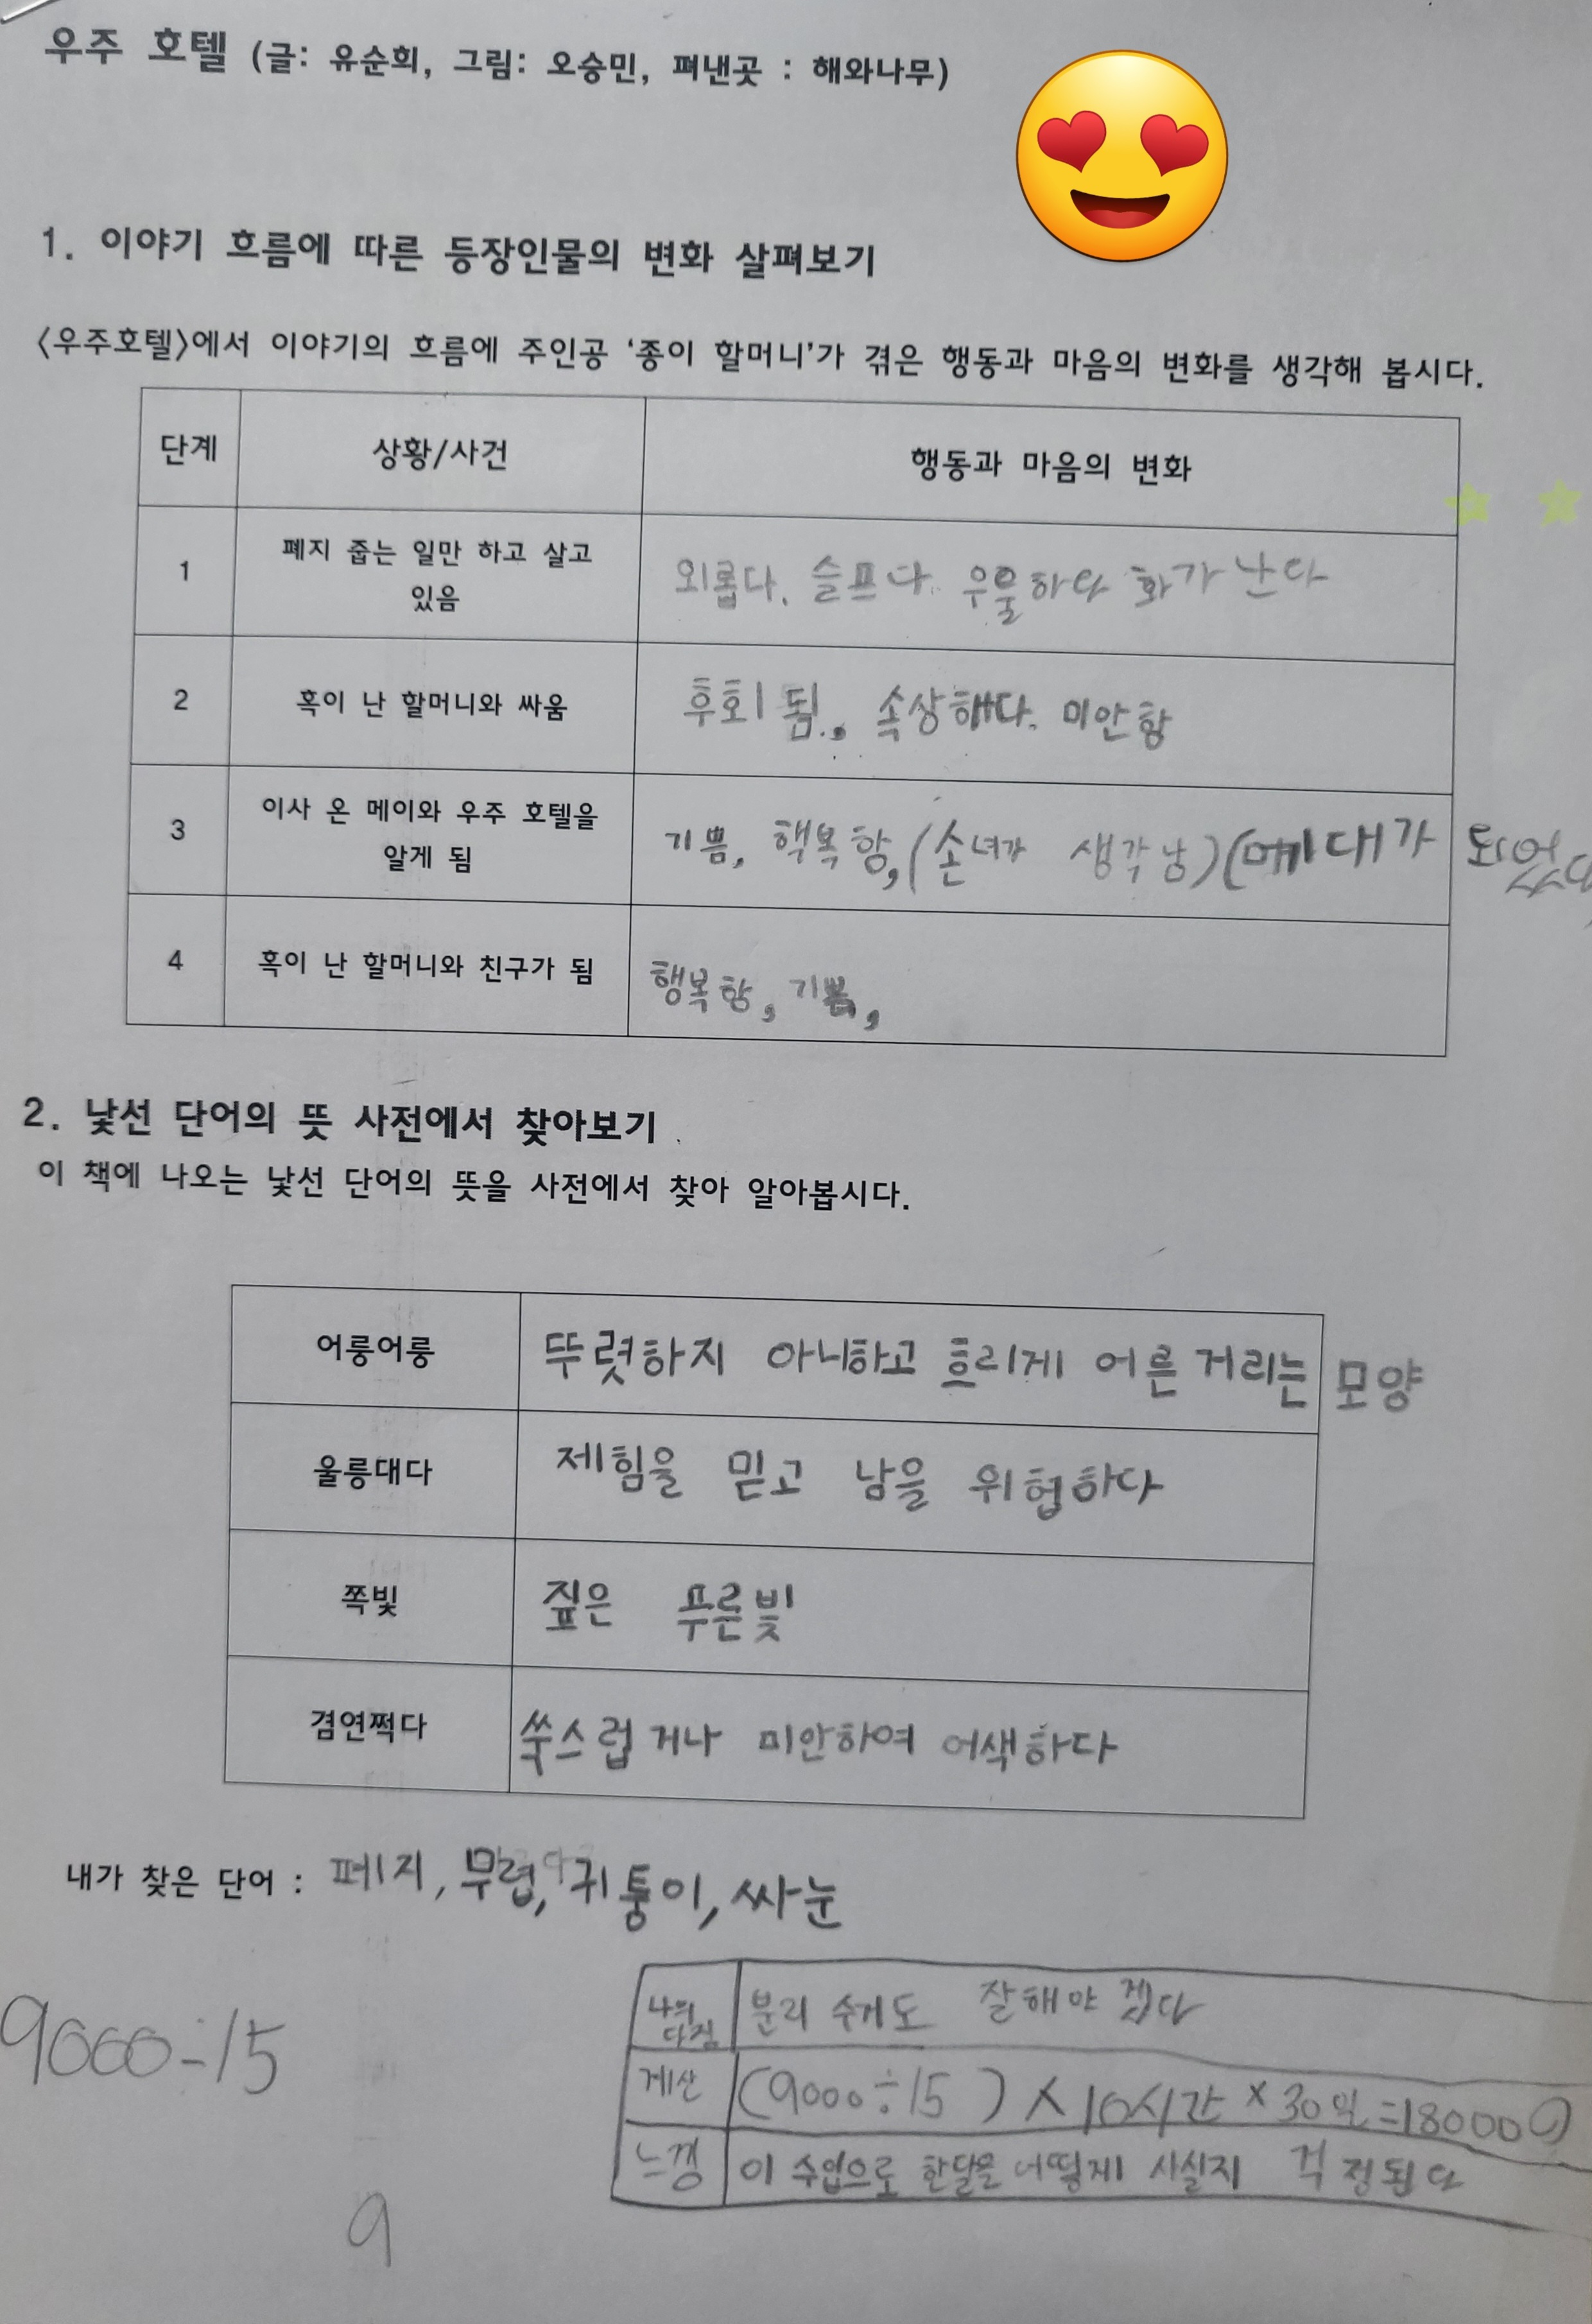 우주 호텔 (글: 유순희, 그림: 오승민, 펴낸곳 : 해와나무)
1. 이야기 흐름에 따른 등장인물의 변화 살펴보기
<우주호텔>에서 이야기의 흐름에 주인공 '종이 할머니'가 겪은 행동과 마음의 변화를 생각해 봅시다.
단계 상황/사건 행동과 마음의 변화
1 폐지 줍는 일만 하고 살고 있음 외롭다. 슬프다. 우울하다 화가 난다
2 혹이 난 할머니와 싸움 후회됨., 속상해다. 미안함
3 이사 온 메이와 우주 호텔을 알게 됨 기쁨, 행복함, (손녀가 생각남)
4 혹이 난 할머니와 친구가 됨 행복함, 기쁨,
2. 낯선 단어의 뜻 사전에서 찾아보기
이 책에 나오는 낯선 단어의 뜻을 사전에서 찾아 알아봅시다.
어룽어룽 뚜렷하지 아니하고 흐리게 어른거리는 모양
울릉대다 제힘을 믿고 남을 위협하다
쪽빛 짚은 푸른빛
겸연쩍다 쑥스럽거나 미안하여 어색하다
내가 찾은 단어 : 페지, 무렵, 귀퉁이, 싸눈
9000÷15
나의 다짐 분리 수거도 잘해야 겠다
계산 (9000÷15) × 10시간 × 30일=180000
느낌 이 수입으로 한달을 어떻게 사실지 걱정된다
9